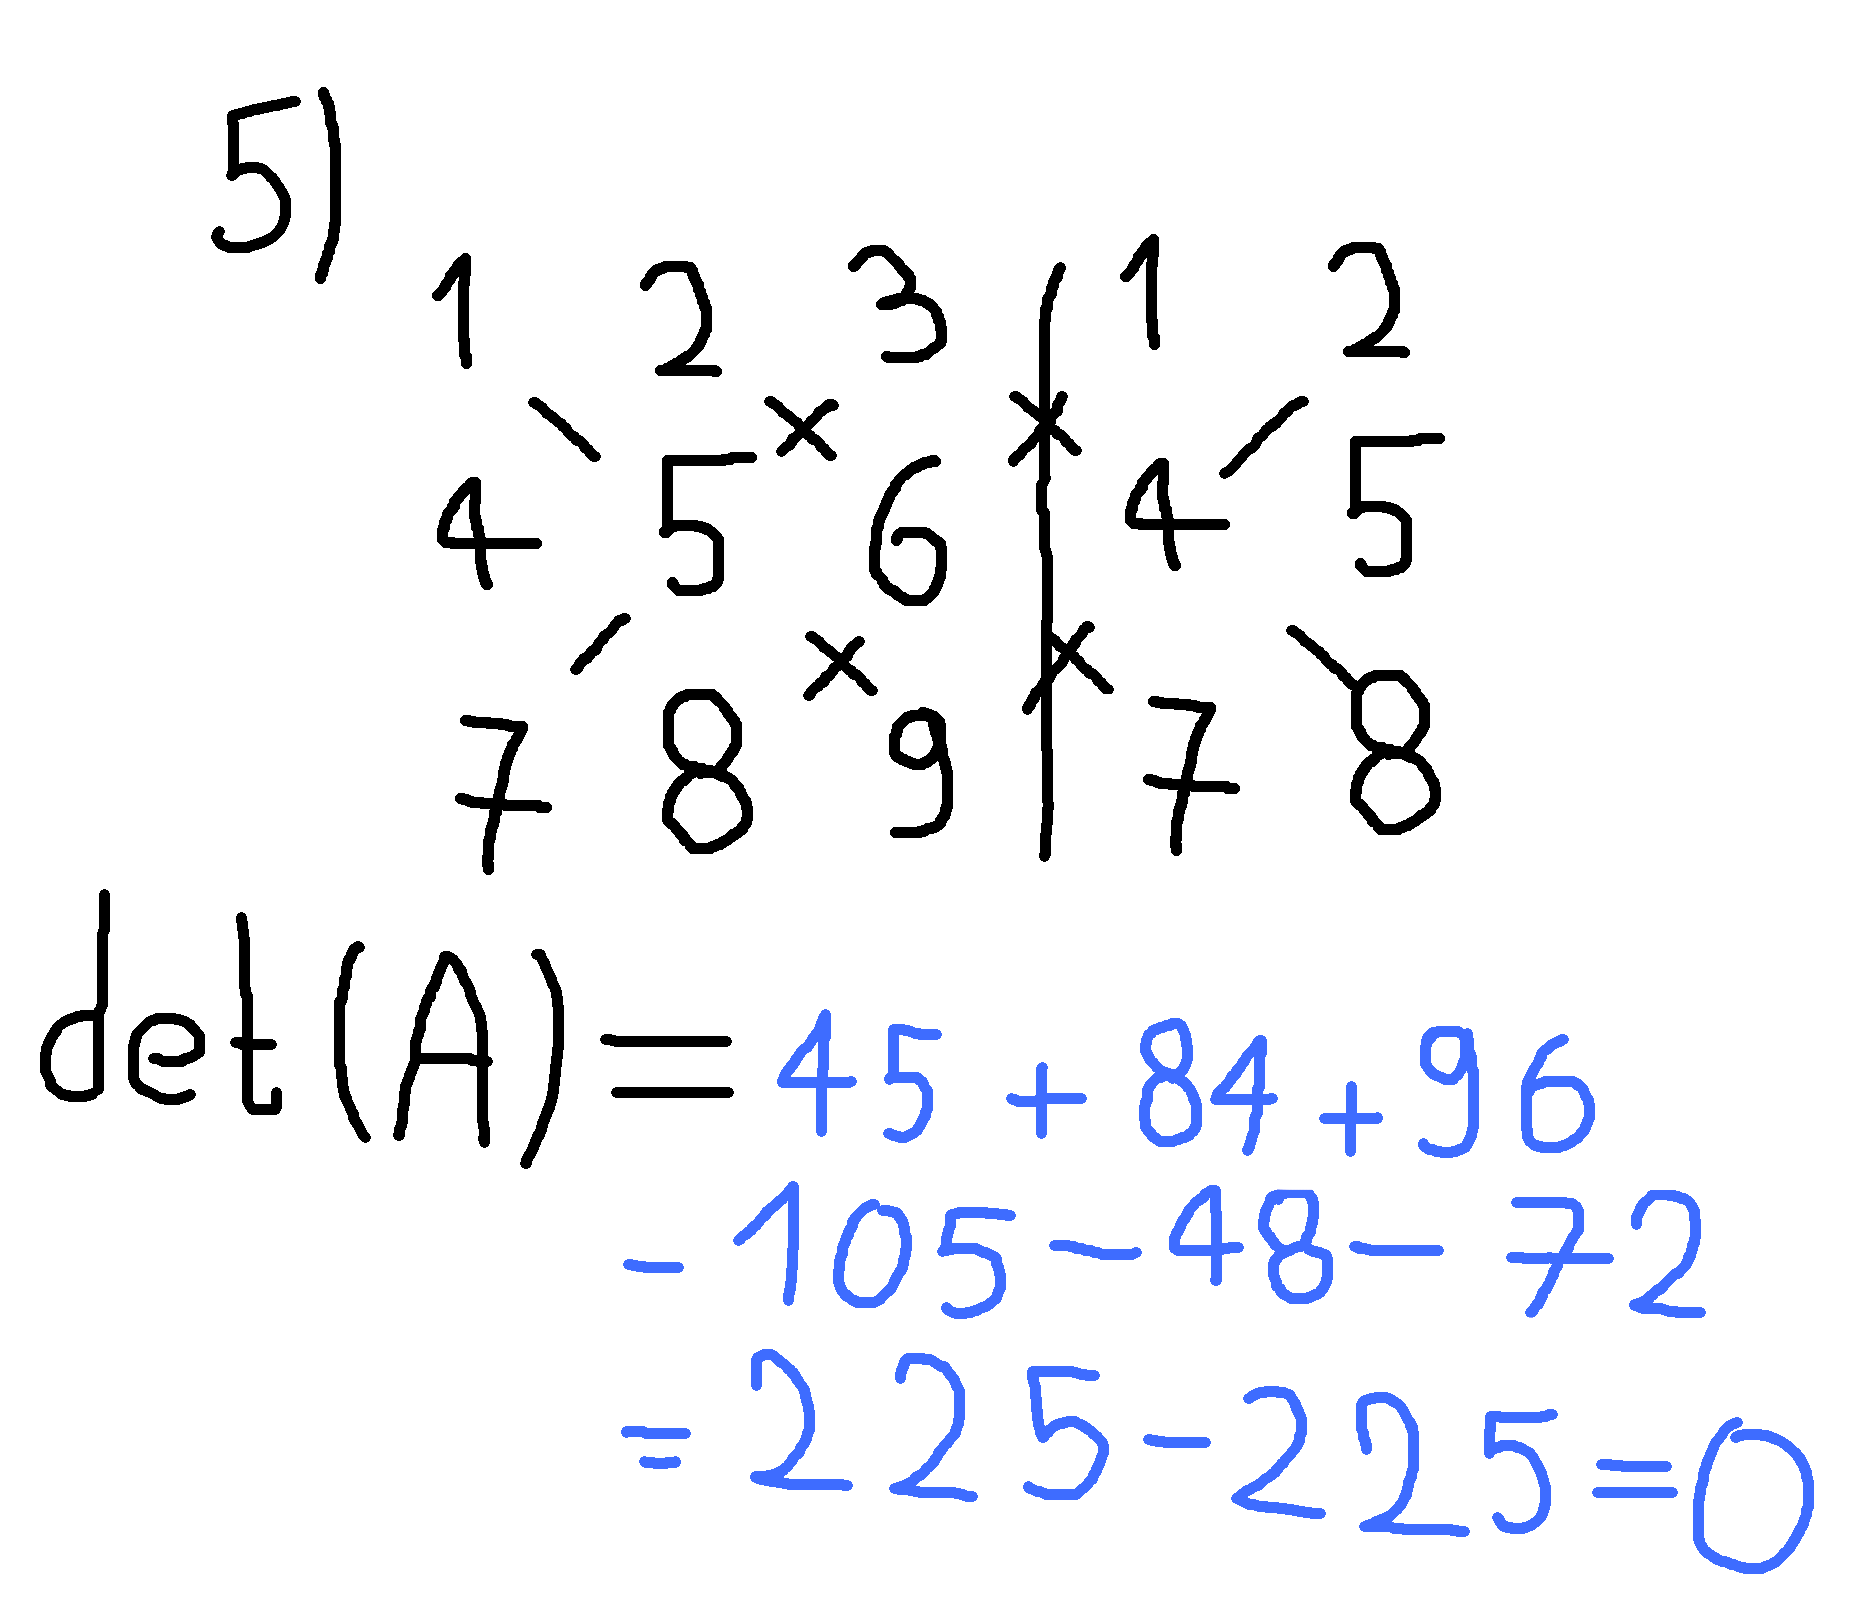 5)
1 2 3 | 1 2
4 5 6 | 4 5
7 8 9 | 7 8
det(A) = 45 + 84 + 96
- 105 - 48 - 72
= 225 - 225 = 0